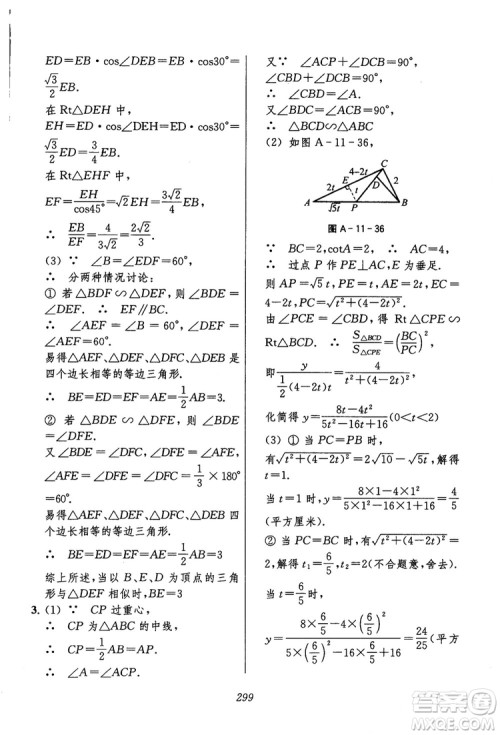 ED=EB·cos∠DEB=EB·cos30°=
√3/2 EB.
在 Rt△DEH 中，
EH=ED·cos∠DEH=ED·cos30°=
√3/2 ED=3/4 EB.
在 Rt△EHF 中，
EF=EH/cos45°=√2 EH=3√2/4 EB.
∴ EB/EF=4/3√2=2√2/3.
(3) ∵ ∠B=∠EDF=60°，
∴ 分两种情况讨论：
① 若 △BDF∽△DEF.∴ EF∥BC.
∴ ∠AEF=∠B=60°，∠DFE=∠DFC=60°，
易得△AEF、△DEF、△DFC、△DEB 是
四个边长相等的等边三角形.
∴ BE=ED=EF=1/2AB=3.
② 若 △BED∽△DEF，
又∵ △BED∽△CDF，
∴ ∠BED=∠DEF，∠DFE=∠DFC，
∠AEF=∠DEF=∠DEB=1/3×180°
=60°.
易得△AEF、△DEF、△DFC、△DEB 是四
个边长相等的等边三角形.
∴ BE=ED=EA=1/2AB=3
综上所述，当以 B、E、D 为顶点的三角
形与△DEF 相似时，BE=3
3. (1) ∵ CP 过重心，
∴ CP 为△ABC 的中线，
∴ CP=1/2AB=AP，
∴ ∠ACP=∠A，
又∵ ∠ACP+∠DCB=90°，
∠CBD+∠DCB=90°，
∴ ∠CBD=∠ACP=∠A，
又∵ ∠BDC=∠ACB=90°，
∴ △BCD∽△ABC
(2) 如图 A-11-36，
C
4-2t
E
D
2t
2
t
A
√5t
P
B
图 A-11-36
∵ BC=2，cotA=2，∴ AC=4
∴ 过点 P 作PE⊥AC，E 为垂足.
则 AP=√5 t，PE=t，AE=2t，EC=4-2t，
PC=√t²+(4-2t)².
由∠PCE=∠CBD，得 Rt△CPE∽
Rt△BCD.∴ S△BCD/S△CPE=(BC/PC)²，
即y/(1/2(4-2t)t)=4/(t²+(4-2t)²)，
化简得 y=(8t-4t²)/(5t²-16t+16)(0<t<2)
(3) ① 当 PC=PB 时，
有√t²+(4-2t)²=2√5-√5t，解得
t=1.
当 t=1 时，y=(8×1-4×1²)/(5×1²-16×1+16)=4/5
(平方厘米).
② 当 PC=BC 时，有√t²+(4-2t)²=
2，解得 t₁=6/5，t₂=2(不合题意，舍去)
当 t=6/5 时，
y=(8×6/5-4×(6/5)²)/(5×(6/5)²-16×6/5+16)=24/25(平方
299
答案圈
MXQE.COM